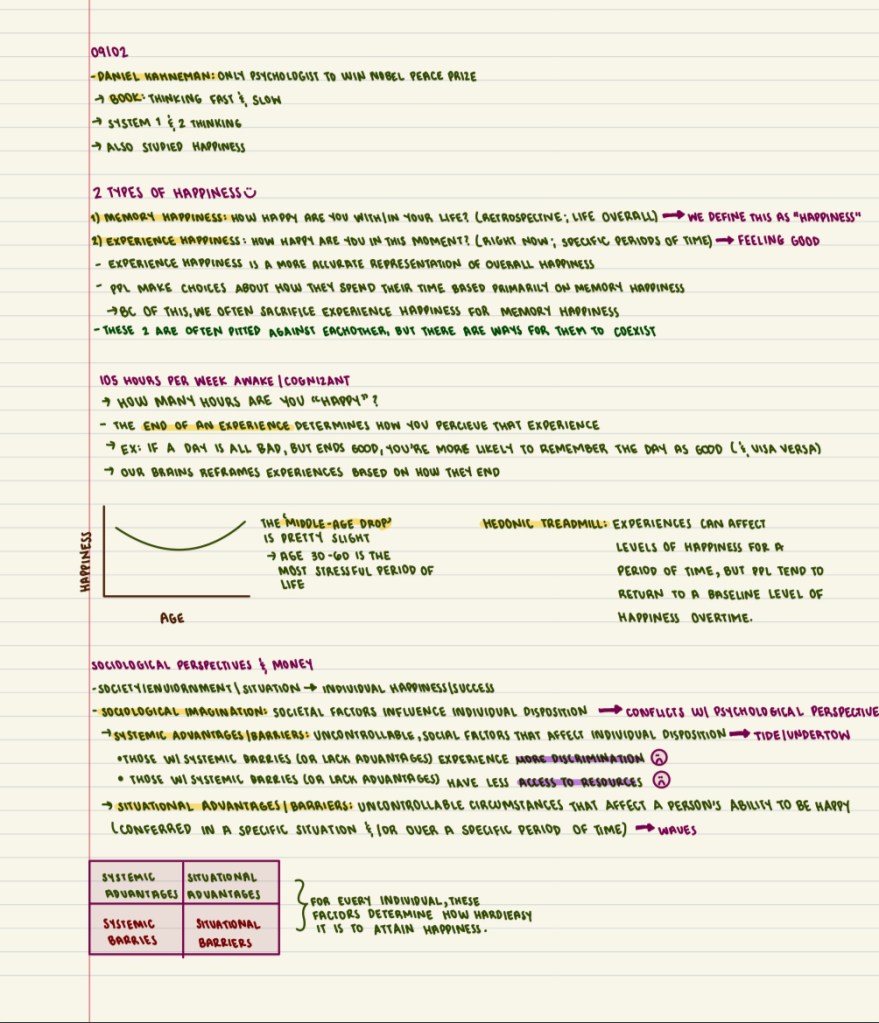 09/02
- DANIEL KAHNEMAN: ONLY PSYCHOLOGIST TO WIN NOBEL PEACE PRIZE
→ BOOK: THINKING FAST & SLOW
→ SYSTEM 1 & 2 THINKING
→ ALSO STUDIED HAPPINESS
2 TYPES OF HAPPINESS
1) MEMORY HAPPINESS: HOW HAPPY ARE YOU WITH/IN YOUR LIFE? (RETROSPECTIVE; LIFE OVERALL) → WE DEFINE THIS AS "HAPPINESS"
2) EXPERIENCE HAPPINESS: HOW HAPPY ARE YOU IN THIS MOMENT? (RIGHT NOW; SPECIFIC PERIODS OF TIME) → FEELING GOOD
- EXPERIENCE HAPPINESS IS A MORE ACCURATE REPRESENTATION OF OVERALL HAPPINESS
- PPL MAKE CHOICES ABOUT HOW THEY SPEND THEIR TIME BASED PRIMARILY ON MEMORY HAPPINESS
→ BC OF THIS, WE OFTEN SACRIFICE EXPERIENCE HAPPINESS FOR MEMORY HAPPINESS
- THESE 2 ARE OFTEN PITTED AGAINST EACHOTHER, BUT THERE ARE WAYS FOR THEM TO COEXIST
105 HOURS PER WEEK AWAKE/COGNIZANT
→ HOW MANY HOURS ARE YOU "HAPPY"?
- THE END OF AN EXPERIENCE DETERMINES HOW YOU PERCIEVE THAT EXPERIENCE
→ EX: IF A DAY IS ALL BAD, BUT ENDS GOOD, YOU'RE MORE LIKELY TO REMEMBER THE DAY AS GOOD (& VISA VERSA)
→ OUR BRAINS REFRAMES EXPERIENCES BASED ON HOW THEY END
HAPPINESS
AGE
THE 'MIDDLE-AGE DROP'
IS PRETTY SLIGHT
→ AGE 30-60 IS THE
MOST STRESSFUL PERIOD OF
LIFE
HEDONIC TREADMILL: EXPERIENCES CAN AFFECT
LEVELS OF HAPPINESS FOR A
PERIOD OF TIME, BUT PPL TEND TO
RETURN TO A BASELINE LEVEL OF
HAPPINESS OVERTIME.
SOCIOLOGICAL PERSPECTIVES & MONEY
- SOCIETY/ENVIORNMENT/SITUATION → INDIVIDUAL HAPPINESS/SUCCESS
- SOCIOLOGICAL IMAGINATION: SOCIETAL FACTORS INFLUENCE INDIVIDUAL DISPOSITION → CONFLICTS W/ PSYCHOLOGICAL PERSPECTIVE
→ SYSTEMIC ADVANTAGES/BARRIERS: UNCONTROLLABLE, SOCIAL FACTORS THAT AFFECT INDIVIDUAL DISPOSITION → TIDE/UNDERTOW
• THOSE W/ SYSTEMIC BARRIES (OR LACK ADVANTAGES) EXPERIENCE MORE DISCRIMINATION
• THOSE W/ SYSTEMIC BARRIES (OR LACK ADVANTAGES) HAVE LESS ACCESS TO RESOURCES
→ SITUATIONAL ADVANTAGES/BARRIERS: UNCONTROLLABLE CIRCUMSTANCES THAT AFFECT A PERSON'S ABILITY TO BE HAPPY
(CONFERRED IN A SPECIFIC SITUATION &/OR OVER A SPECIFIC PERIOD OF TIME) → WAVES
SYSTEMIC
ADVANTAGES
SITUATIONAL
ADVANTAGES
SYSTEMIC
BARRIES
SITUATIONAL
BARRIERS
FOR EVERY INDIVIDUAL, THESE
FACTORS DETERMINE HOW HARD/EASY
IT IS TO ATTAIN HAPPINESS.